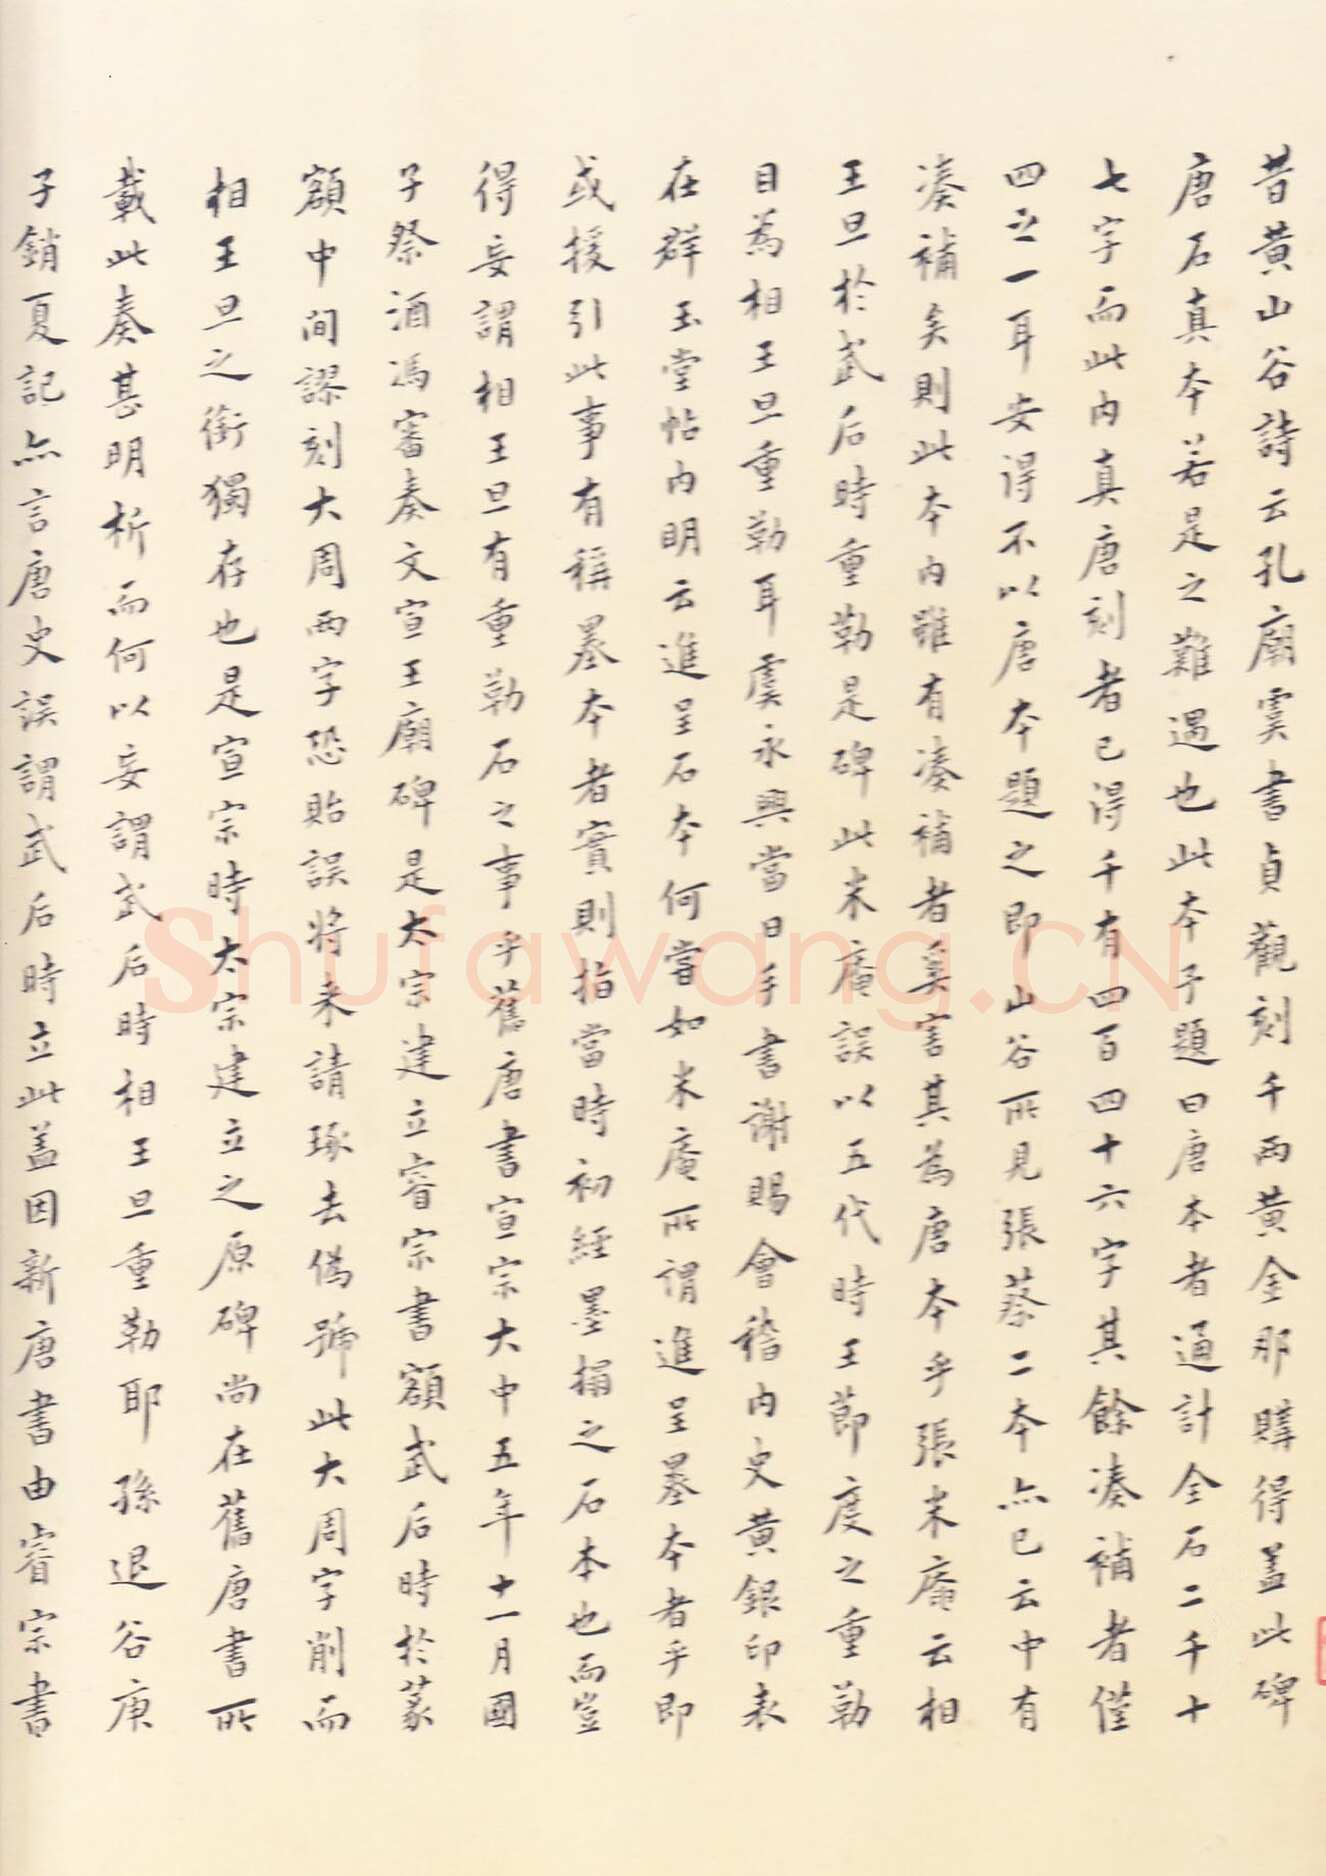 昔黄山谷詩云孔廟虞書貞觀刻千兩黄金那購得蓋此碑
唐石真本若是之難遇也此本予題曰唐本者通計全石二千十
七字而此内真唐刻者已得千有四百四十六字其餘湊補者僅
四之一耳安得不以唐本題之即山谷所見張蔡二本亦已云中有
湊補矣則此本内雖有湊補者奚害其為唐本乎張米庵云相
王旦於武后時重勒是碑此米庵誤以五代時王節度之重勒
目為相王旦重勒耳虞永興當日手書謝賜會稽内史黄銀印表
在群玉堂帖内明云進呈石本何嘗如米庵所謂進呈墨本者乎即
或援引此事有稱墨本者實則指當時初經墨搨之石本也而豈
得妄謂相王旦有重勒石之事乎舊唐書宣宗大中五年十一月國
子祭酒馮審奏文宣王廟碑是太宗建立睿宗書額武后時於篆
額中間謬刻大周兩字恐貽誤將来請琢去偽號此大周字削而
相王旦之銜獨存也是宣宗時太宗建立之原碑尚在舊唐書所
載此奏甚明析而何以妄謂武后時相王旦重勒耶孫退谷庚
子銷夏記亦言唐史誤謂武后時立此蓋因新唐書由睿宗書
Shufawang.CN